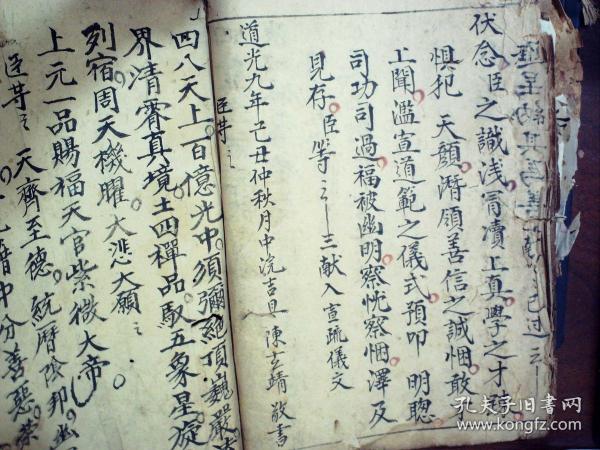 伏念臣之識淺冒瀆上真學之才
惧犯 天顏濳領善信之誠悃敢
上聞濫宣道範之儀式預叩 明聰
司功司過福被幽明察忱察悃澤及
見存臣等 三献入 宣疏儀文
道光九年己丑仲秋月中浣吉旦 陳玄靖 敬書
臣等
四八天上百億光中須彌絕頂巍嚴
界清霄真境土四禪品馭五象星旋
列宿周天機曜大悲大願
上元一品賜福天官紫微大帝
臣等 天齊至德統曆陰邦
中分善惡
孔夫子旧书网
www.kongfz.com